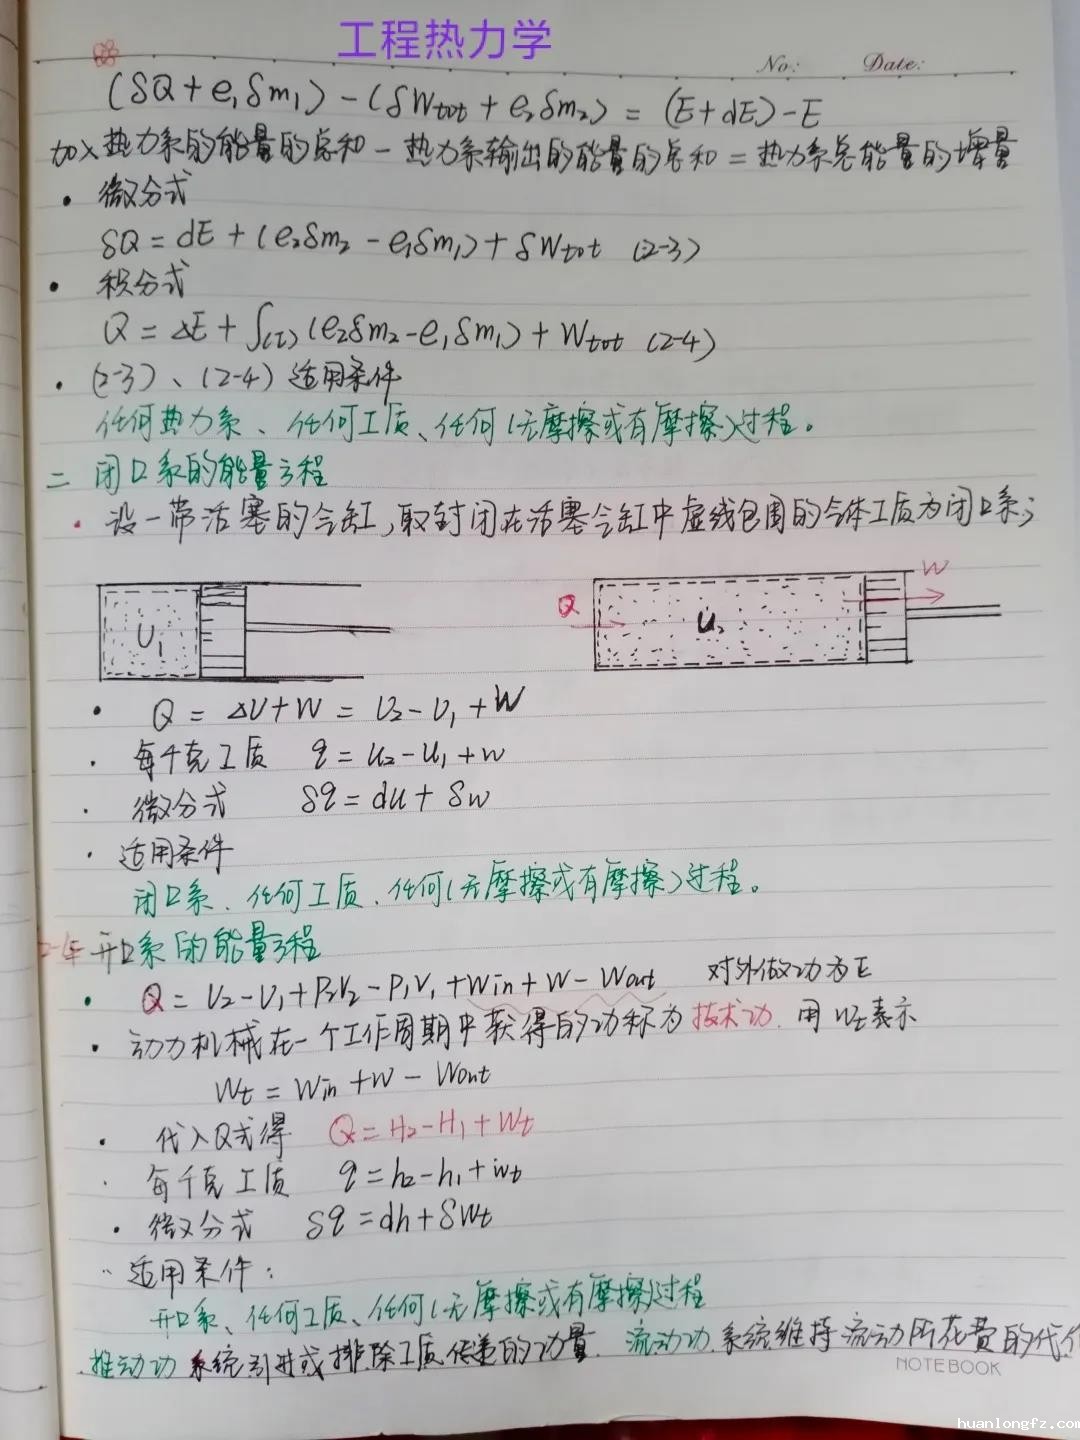 工程热力学
No: Date:
(δQ + e₁δm₁) - (δWtot + e₂δm₂) = (E + dE) - E
加入热力系的能量的总和 - 热力系输出的能量的总和 = 热力系总能量的增量
• 微分式
δQ = dE + (e₂δm₂ - e₁δm₁) + δWtot (2-3)
• 积分式
Q = ΔE + ∫(τ) (e₂δm₂ - e₁δm₁) + Wtot (2-4)
• (2-3)、(2-4) 适用条件
任何热力系、任何工质、任何(无摩擦或有摩擦)过程。
二 闭口系的能量方程
• 设一带活塞的气缸,取封闭在活塞气缸中虚线包围的气体工质为闭口系;
U₁ Q U₂ W
• Q = ΔU + W = U₂ - U₁ + W
• 每千克工质 q = u₂ - u₁ + w
• 微分式 δq = du + δw
• 适用条件
闭口系、任何工质、任何(无摩擦或有摩擦)过程。
开口系的能量方程
• Q = U₂ - U₁ + P₂V₂ - P₁V₁ + Win + W - Wout 对外做功为正
• 动力机械在一个工作周期中获得的功称为技术功. 用Wt表示
Wt = Win + W - Wout
• 代入Q式得 Q = H₂ - H₁ + Wt
• 每千克工质 q = h₂ - h₁ + wt
• 微分式 δq = dh + δwt
• 适用条件:
开口系、任何工质、任何(无摩擦或有摩擦)过程
推动功 系统引进或排除工质传递的功量. 流动功.系统维持流动所花费的代价
NOTEBOOK
huanlongfz.com